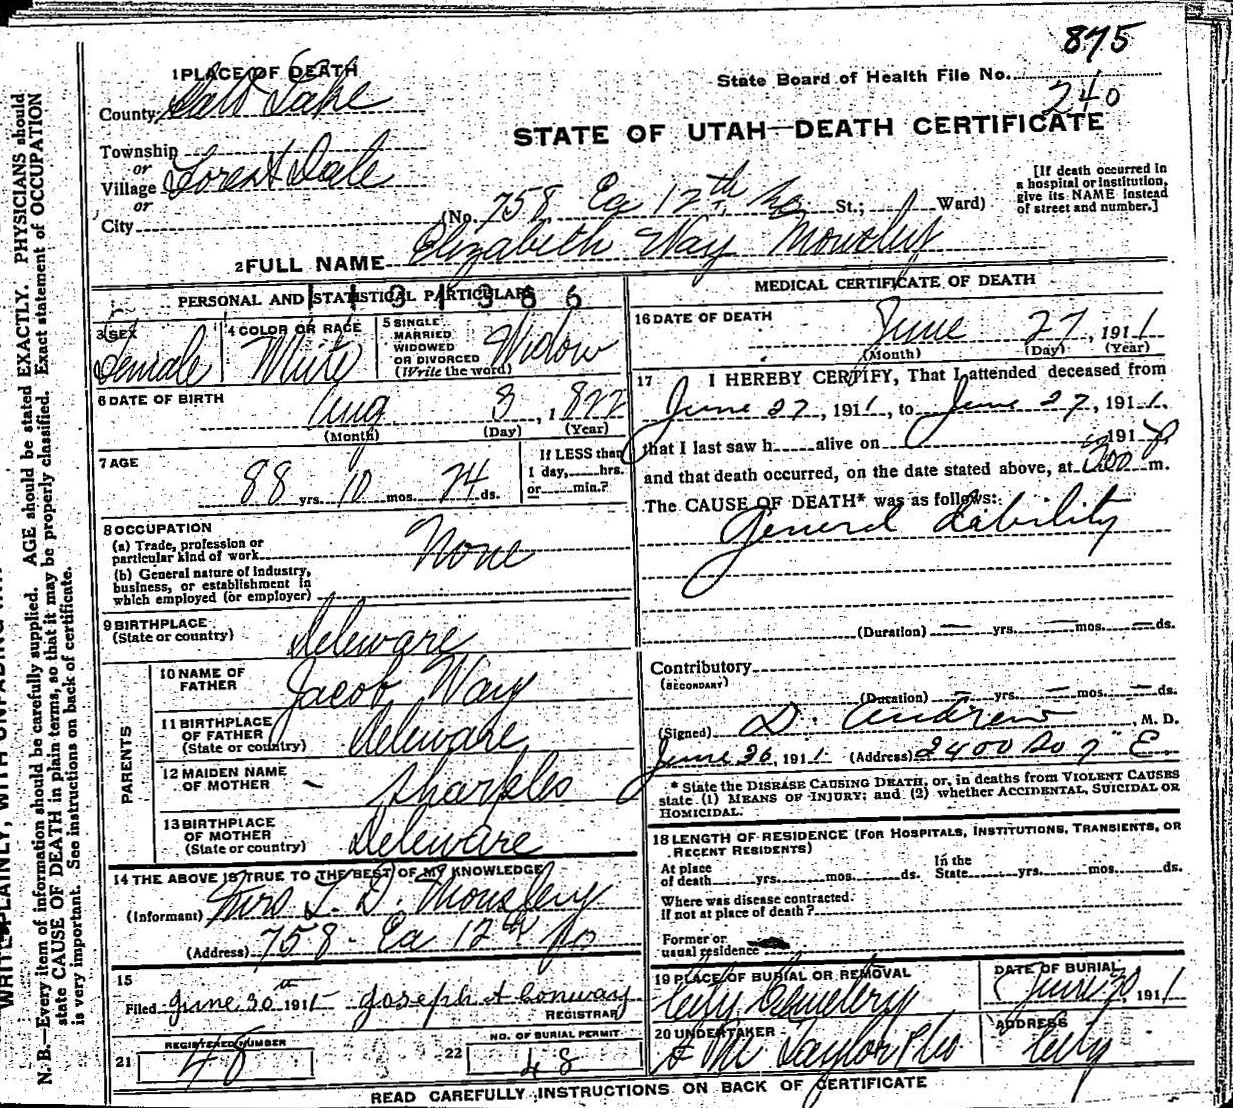 875
State Board of Health File No.
240
1 PLACE OF DEATH
County Salt Lake
STATE OF UTAH—DEATH CERTIFICATE
Township
or
Village Forest Dale
or
City
(No. 758 Ea 12th So St.; Ward)
[If death occurred in
a hospital or institution,
give its NAME instead
of street and number.]
2 FULL NAME Elizabeth Way Mousley
PERSONAL AND STATISTICAL PARTICULARS
3 SEX
Female
4 COLOR OR RACE
White
5 SINGLE
MARRIED
WIDOWED
OR DIVORCED
(Write the word)
Widow
6 DATE OF BIRTH
Aug 3, 1822
(Month) (Day) (Year)
7 AGE
88 yrs. 10 mos. 24 ds.
If LESS than
1 day, hrs.
or min.?
8 OCCUPATION
(a) Trade, profession or
particular kind of work
None
(b) General nature of industry,
business, or establishment in
which employed (or employer)
9 BIRTHPLACE
(State or country)
Deleware
PARENTS
10 NAME OF
FATHER
Jacob Way
11 BIRTHPLACE
OF FATHER
(State or country)
Deleware
12 MAIDEN NAME
OF MOTHER
— Sharples
13 BIRTHPLACE
OF MOTHER
(State or country)
Deleware
14 THE ABOVE IS TRUE TO THE BEST OF MY KNOWLEDGE
(Informant) Mrs L. D. Mousley
(Address) 758 - Ea 12th So
15
Filed June 30th 1911 Joseph A Conway
REGISTRAR
REGISTERED NUMBER
21 48
NO. OF BURIAL PERMIT
22 48
MEDICAL CERTIFICATE OF DEATH
16 DATE OF DEATH
June 27, 1911
(Month) (Day) (Year)
17 I HEREBY CERTIFY, That I attended deceased from
June 27, 1911, to June 27, 1911,
that I last saw h alive on 191
and that death occurred, on the date stated above, at m.
The CAUSE OF DEATH* was as follows:
General dability
(Duration) — yrs. — mos. — ds.
Contributory
(SECONDARY)
(Duration) — yrs. — mos. — ds.
(Signed) D. Andrew, M. D.
June 26, 1911 (Address) 2400 So 7" E.
* State the DISEASE CAUSING DEATH, or, in deaths from VIOLENT CAUSES
state (1) MEANS OF INJURY; and (2) whether ACCIDENTAL, SUICIDAL OR
HOMICIDAL.
18 LENGTH OF RESIDENCE (FOR HOSPITALS, INSTITUTIONS, TRANSIENTS, OR
RECENT RESIDENTS)
At place
of death yrs. mos. ds.
In the
State yrs. mos. ds.
Where was disease contracted.
if not at place of death?
Former or
usual residence
19 PLACE OF BURIAL OR REMOVAL
City Cemetery
DATE OF BURIAL
June 30, 1911
20 UNDERTAKER
S M Taylor & Co
ADDRESS
City
READ CAREFULLY INSTRUCTIONS ON BACK OF CERTIFICATE
N. B.—Every item of information should be carefully supplied. AGE should be stated EXACTLY. PHYSICIANS should
state CAUSE OF DEATH in plain terms, so that it may be properly classified. Exact statement of OCCUPATION
is very important. See instructions on back of certificate.